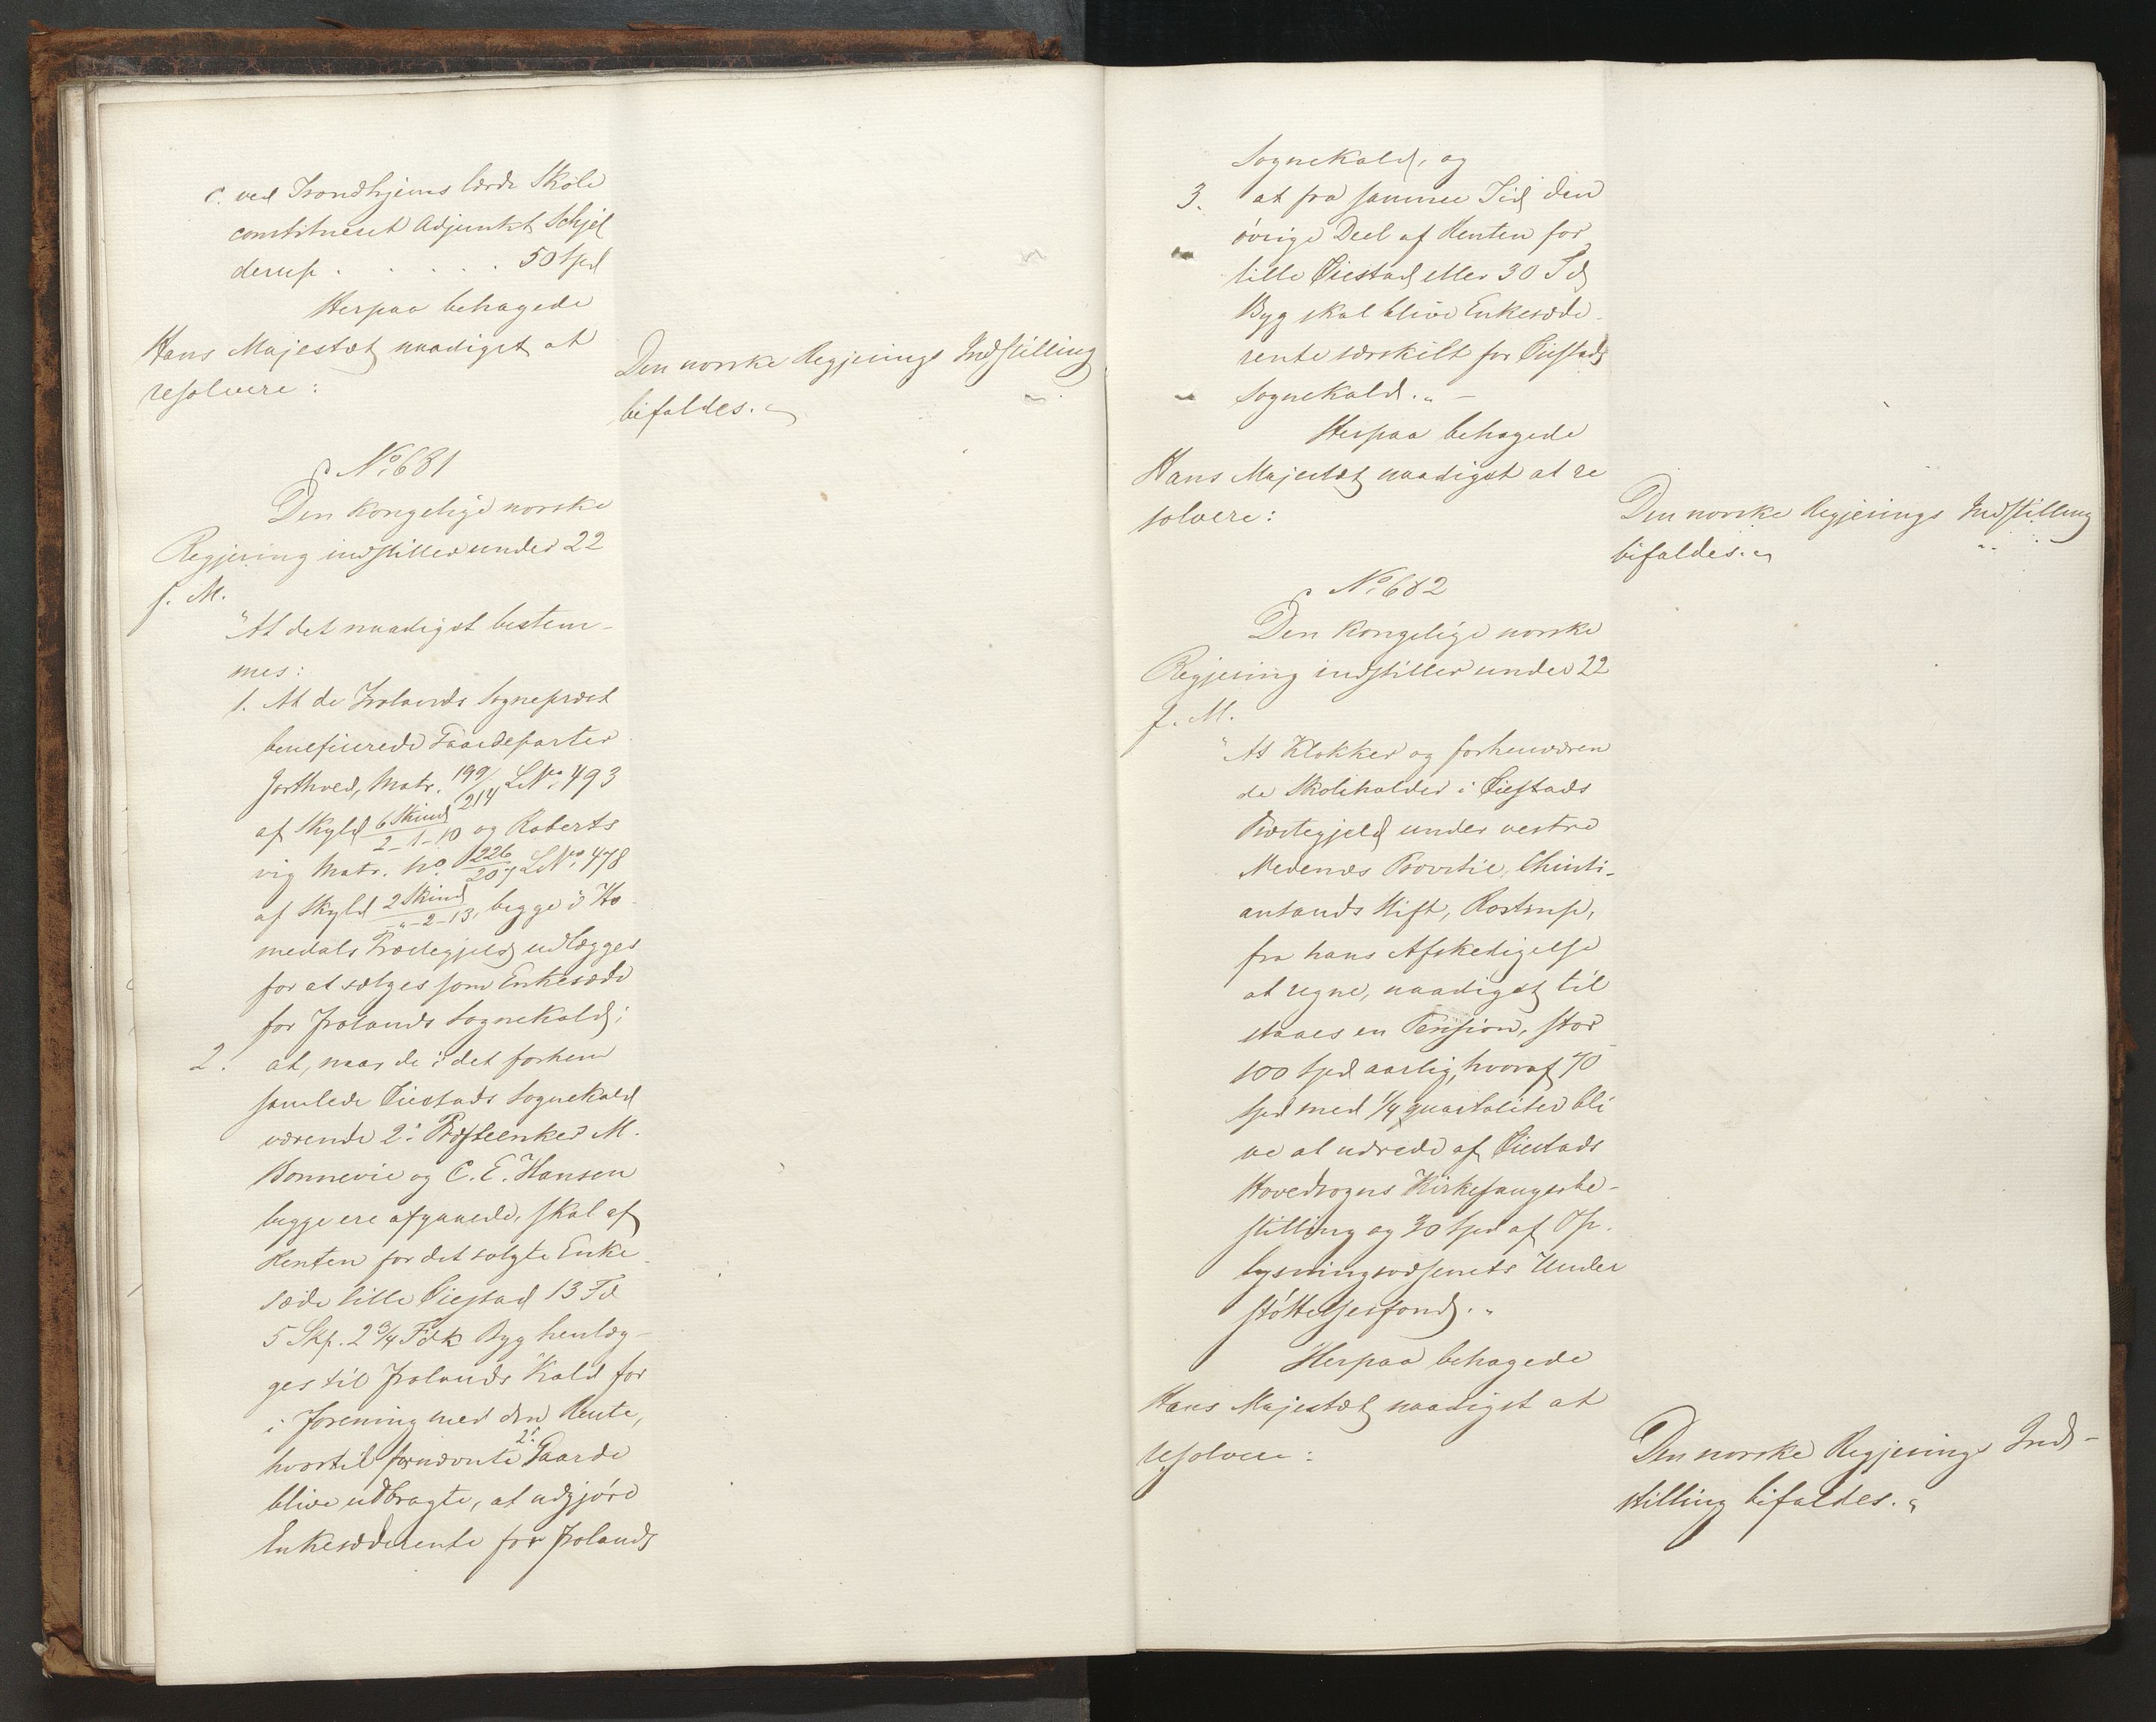 c. ved Trondhjems lærde Skole
constitueret Adjunkt Schjel
derup . . . . . 50 Spd
Herpaa behagede
Hans Majestæt naadigst at
resolvere:
Den norske Regjerings Indstilling
bifaldes.
No. 681
Den Kongelige norske
Regjering indstiller under 22
f. M.
"At det naadigst bestem-
mes:
1. At de Frolands Sognepræst
beneficerede Gaardeparter
Jorthved, Matr. 199/214 LNo. 493
af Skyld 6 Skind/2-1-10 og Roberts
vig Matr. No. 226/207 LNo. 478
af Skyld 2 Skind/-"-2-13, begge i Ho
medals Præstegjeld udlægges
for at sælges som Enkesæde
for Frolands Sognekald;
2. at, naar de i det forhen
samlede Øiestads Sognekald
værende 2de Præsteenker M.
Bonnevie og C. E. Hansen
begge ere afgaaede, skal af
Renten for det solgte Enke
sæde lille Øiestad 13 Td
5 Skp. 2 3/4 Fdk Byg henlæg-
ges til Frolands Kald for
i Forening med den Rente,
hvortil fornævnte 2de Gaarde
blive udbragte, at udgjøre
Enkesæderente for Frolands
Sognekald, og
3. at fra samme Tid den
øvrige Deel af Renten for
lille Øiestad eller 30 Td
Byg skal blive Enkesæde-
rente særskilt for Øiestads
Sognekald." -
Herpaa behagede
Hans Majestæt naadigst at re
solvere:
Den norske Regjerings Indstilling
bifaldes.
No. 682
Den Kongelige norske
Regjering indstiller under 22
f. M.
"At Klokker og forhenværen
de Skoleholder i Øiestads
Præstegjeld under vestre
Nedenæs Provstie, Christi-
ansands Stift, Rostrup,
fra hans Afskedigelse
at regne, naadigst til
staaes en Pension, stor
100 Spd aarlig, hvoraf 70
Spd med 1/4 quartaliter bli
ve at udrede af Øiestads
Hovedsogns Kirkesangerbe-
stilling og 30 Spd af Op-
lysningsvæsenets Under
støttelsesfond."
Herpaa behagede
Hans Majestæt naadigst at
resolvere:
Den norske Regjerings Ind-
stilling bifaldes.